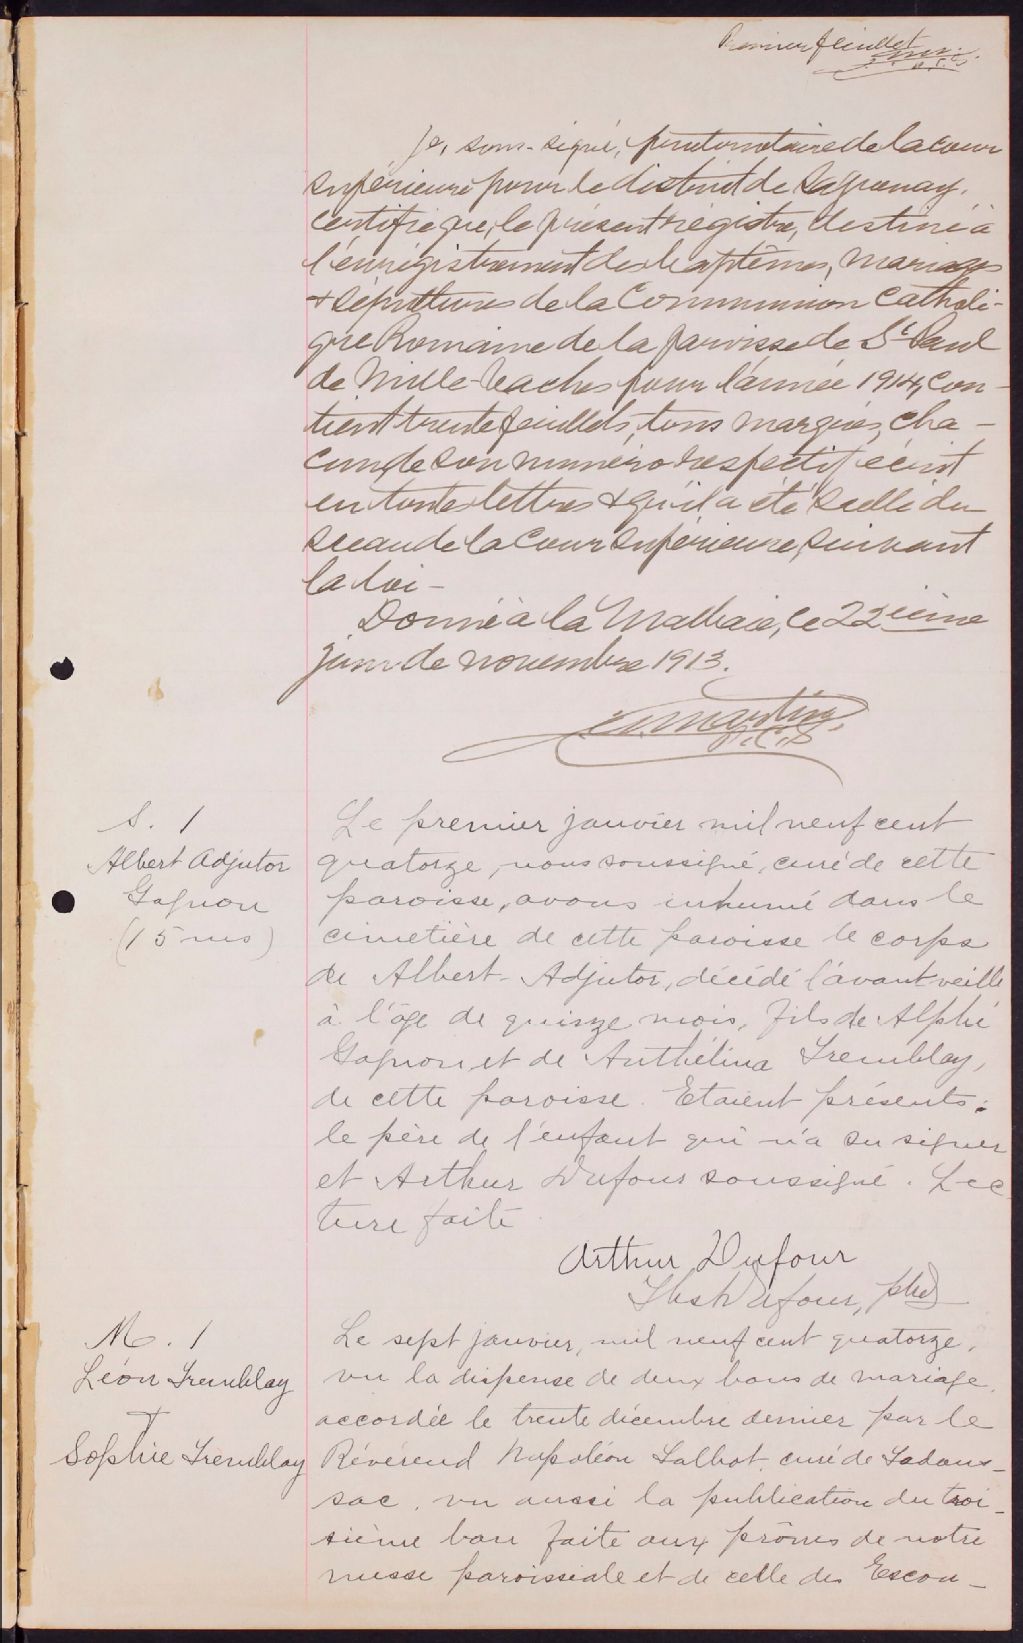 Premier feuillet
P.C.S.
Je, sous-signé, protonotaire de la cour
supérieure pour le district de Saguenay,
certifie que, le présent régistre, destiné à
l'enrégistrement des baptêmes, mariages
& sépultures de la Communion Catholi-
que Romaine de la paroisse de St Paul
de Mille-Vaches pour l'année 1914, con-
tient trente feuillets, tous marqués, cha-
cun, de son numéro respectif écrit
en toutes lettres & qu'il a été scellé du
sceau de la Cour supérieure, suivant
la loi -
Donné à la Malbaie, ce 22ième
jour de novembre 1913.
Martin,
P.C.S
S. 1
Albert Adjutor
Gagnon
(15 ms)
Le premier janvier mil neuf cent
quatorze, nous soussigné, curé de cette
paroisse, avons inhumé dans le
cimetière de cette paroisse le corps
de Albert-Adjutor, décédé l'avant-veille
à l'âge de quinze mois, fils de Alphé
Gagnon et de Anthélina Tremblay,
de cette paroisse. Etaient présents:
le père de l'enfant qui n'a su signer
et Arthur Dufour soussigné. Lec
ture faite
Arthur Dufour
Dufour, ptre
M. 1
Léon Tremblay
+
Sophie Tremblay
Le sept janvier, mil neuf cent quatorze,
vu la dispense de deux bans de mariage,
accordée le trente décembre dernier par le
Révérend Napoléon Talbot, curé de Tadous-
sac, vu aussi la publication du troi-
sième ban faite aux prônes de notre
messe paroissiale et de celle des Escou-